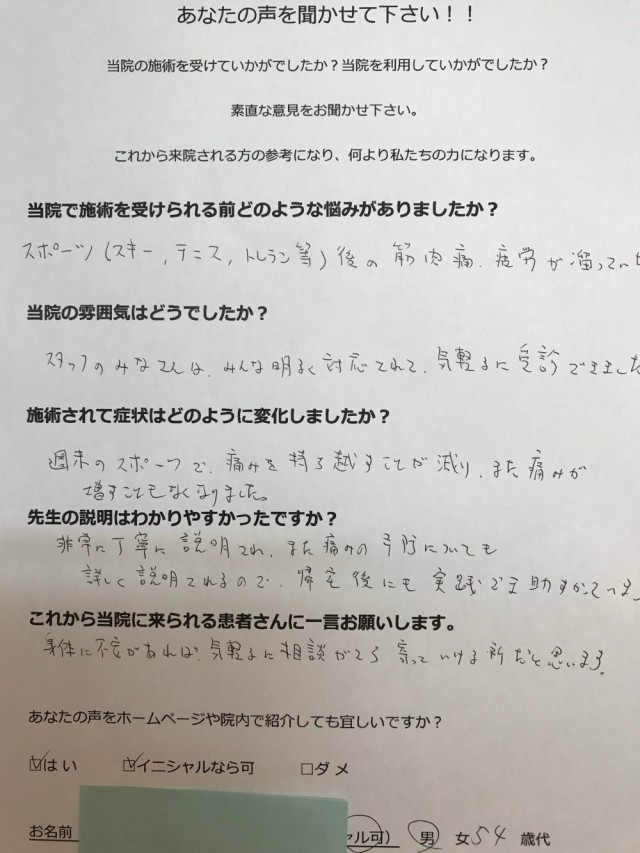 あなたの声を聞かせて下さい！！
当院の施術を受けていかがでしたか？当院を利用していかがでしたか？
素直な意見をお聞かせ下さい。
これから来院される方の参考になり、何より私たちの力になります。
当院で施術を受けられる前どのような悩みがありましたか？
スポーツ（スキー，テニス，トレラン等）後の筋肉痛、疲労が溜ってい
当院の雰囲気はどうでしたか？
スタッフのみなさんは、みんな明るく対応されて、気軽に受診できました
施術されて症状はどのように変化しましたか？
週末のスポーツで、痛みを持ち越すことが減り、また痛みが
増すこともなくなりました。
先生の説明はわかりやすかったですか？
非常に丁寧に説明され、また痛みの予防についても
詳しく説明されるので、帰宅後にも実践でき助かっています
これから当院に来られる患者さんに一言お願いします。
身体に不安があれば、気軽に相談がてら寄っていける所だと思います。
あなたの声をホームページや院内で紹介しても宜しいですか？
☑はい ☑イニシャルなら可 □ダメ
お名前 ャル可） 男 女 54 歳代